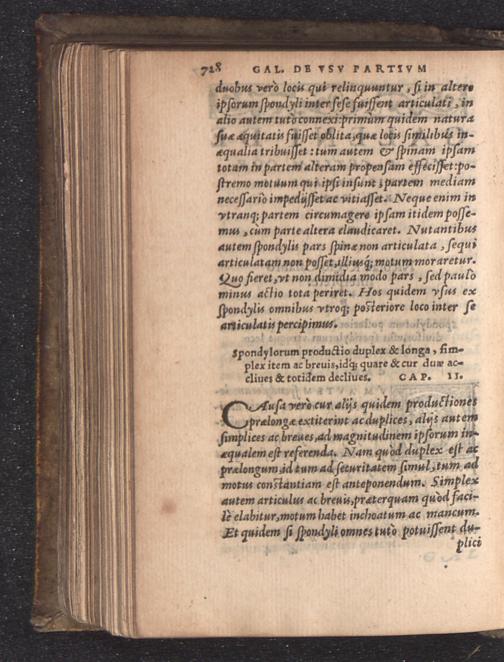 728 GAL. DE VSV PARTIVM
duobus verò locis qui relinquuntur, si in altero
ipsorum spondyli inter sese fuissent articulati, in
alio autem tutò connexi: primùm quidem natura
suæ æquitatis fuisset oblita, quæ locis similibus in-
æqualia tribuisset: tum autem & spinam ipsam
totam in partem alteram propensam effecisset: po-
stremo motuum qui ipsi insunt, partem mediam
necessariò impedisset ac vitiasset. Neque enim in
vtranq; partem circumagere ipsam itidem posse-
mus, cum parte altera claudicaret. Nutantibus
autem spondylis pars spinæ non articulata, sequi
articulatam non posset, illiusq́; motum moraretur.
Quo fieret, vt non dimidia modo pars, sed paulò
minus actio tota periret. Hos quidem vsus ex
spondylis omnibus vtroq; posteriore loco inter se
articulatis percipimus.
Spondylorum productio duplex & longa, sim-
plex item ac breuis, idq; quare & cur duæ ac-
cliues & totidem decliues. CAP. II.
CAusa verò cur alijs quidem productiones
prælongæ extiterint ac duplices, alijs autem
simplices ac breues, ad magnitudinem ipsorum in-
æqualem est referenda. Nam quòd duplex est ac
prælongum, id tum ad securitatem simul, tum ad
motus constantiam est anteponendum. Simplex
autem articulus ac breuis, præterquam quòd faci-
lè elabitur, motum habet inchoatum ac mancum.
Et quidem si spondyli omnes tutò potuissent du-
plici